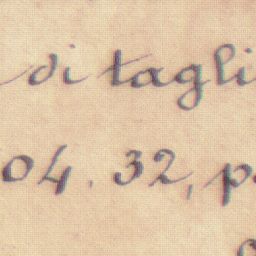 di tagli
04. 32, p